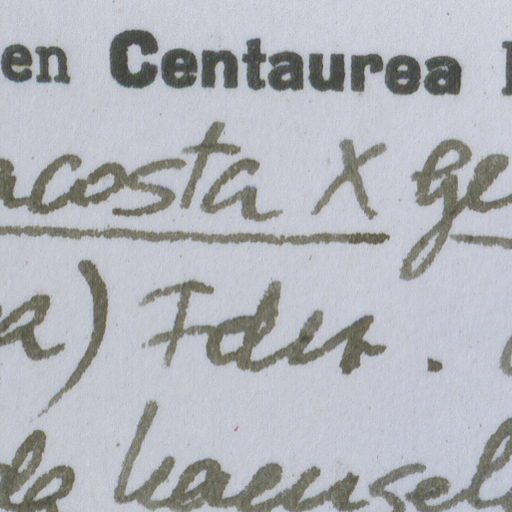 en Centaurea
acosta X ge
a) Fdez.
da haensel